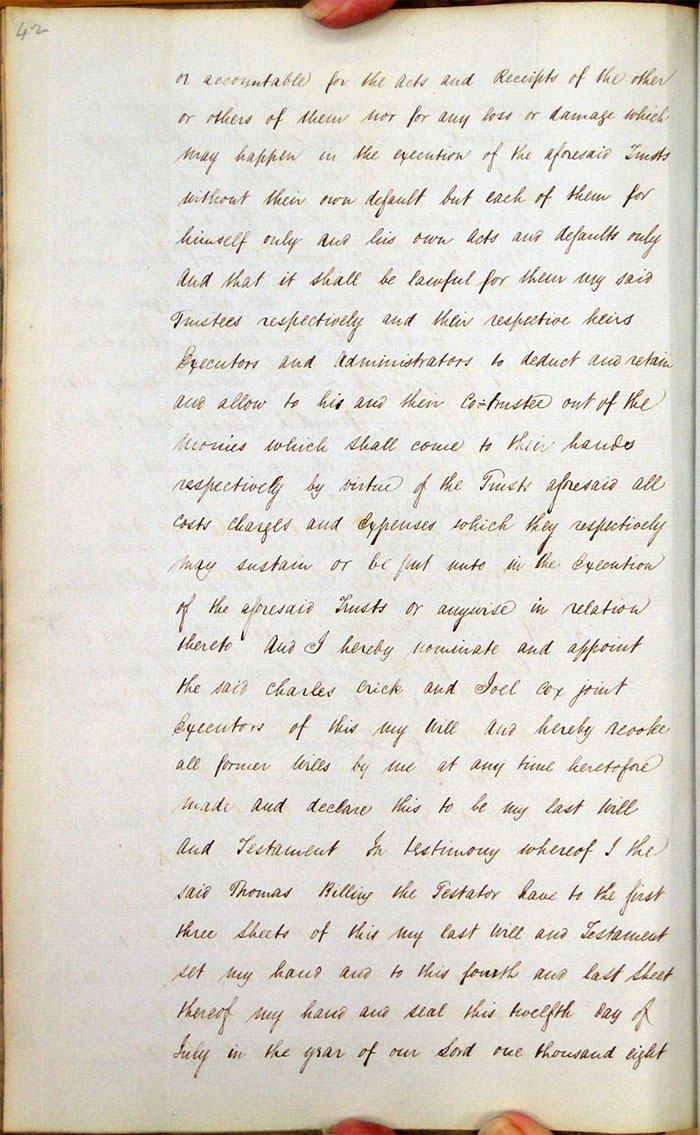 42
or accountable for the Acts and Receipts of the other
or others of them nor for any loss or damage which
may happen in the execution of the aforesaid Trusts
without their own default but each of them for
himself only and his own Acts and defaults only
And that it shall be lawful for them my said
Trustees respectively and their respective heirs
Executors and Administrators to deduct and retain
and allow to his and their Co=trustee out of the
Monies which shall come to their hands
respectively by virtue of the Trusts aforesaid all
costs charges and Expenses which they respectively
may sustain or be put unto in the Execution
of the aforesaid Trusts or anywise in relation
thereto And I hereby nominate and appoint
the said Charles Crick and Joel Cox joint
Executors of this my Will And hereby revoke
all former Wills by me at any time heretofore
made and declare this to be my last Will
And Testament In testimony whereof I the
said Thomas Billing the Testator have to the first
three Sheets of this my last Will and Testament
set my hand and to this fourth and last Sheet
thereof my hand and seal this twelfth day of
July in the year of our Lord one thousand eight